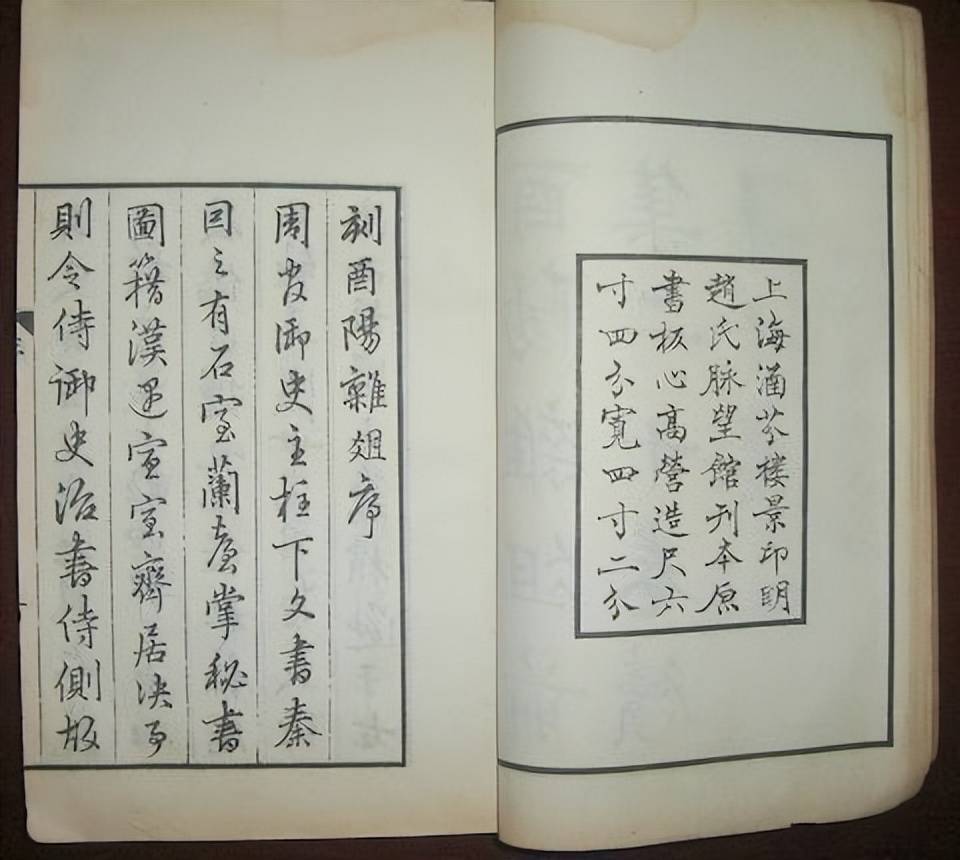 上海涵芬樓景印明
趙氏脉望館刊本原
書板心高營造尺六
寸四分寬四寸二分
刻酉陽雜俎序
周官御史主柱下文書秦
因之有石室蘭臺掌秘書
圖籍漢宣室齋居決事
則令侍御史治書侍側故